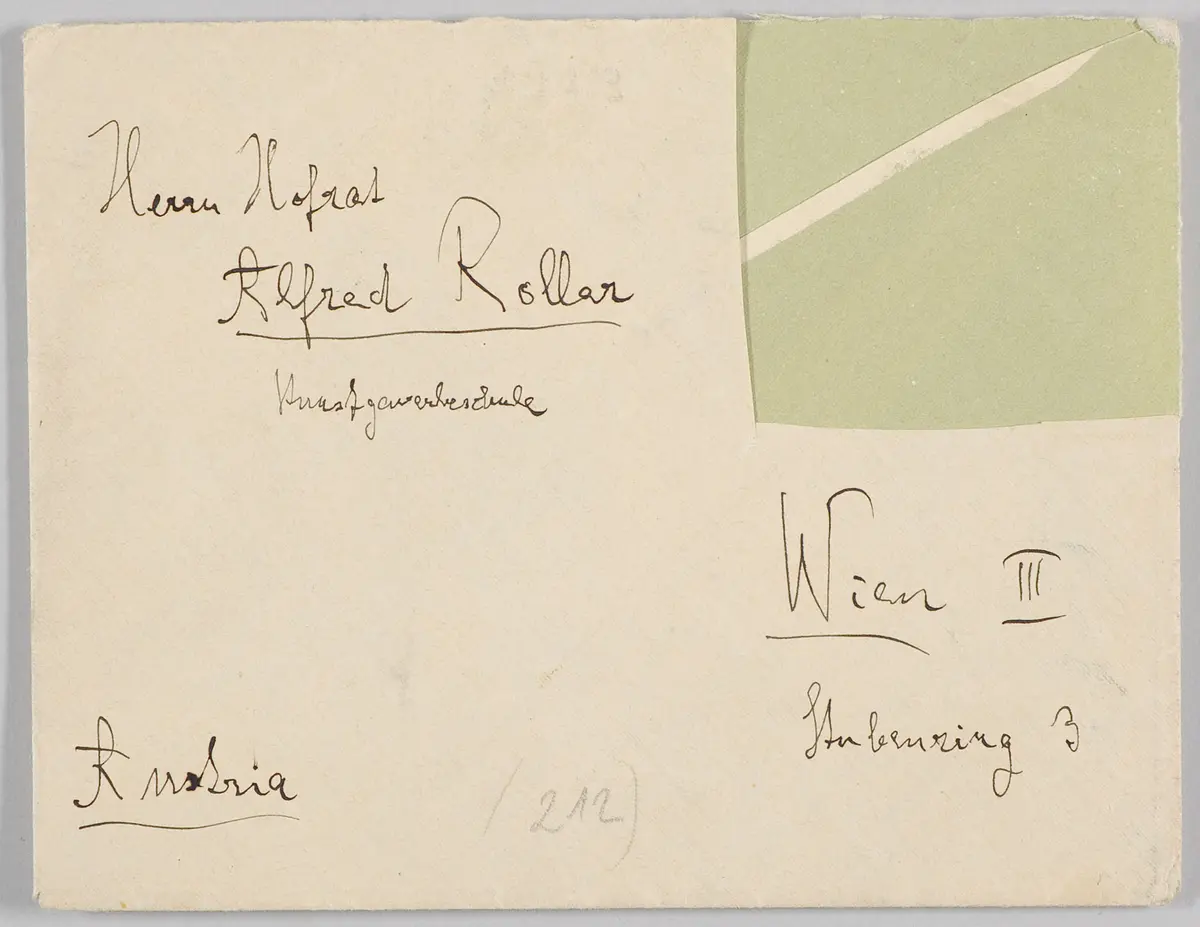 Herrn Hofrat
Alfred Roller
Kunstgewerbeschule
Wien III
Stubenring 3
Austria
212)